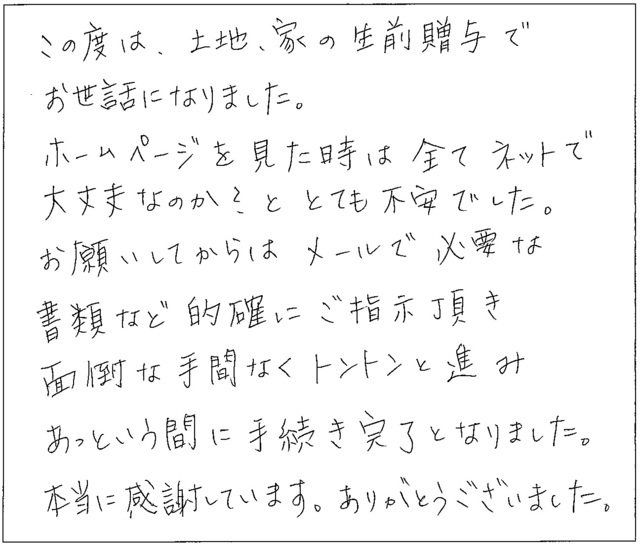 この度は、土地、家の生前贈与で
お世話になりました。
ホームページを見た時は全てネットで
大丈夫なのか?ととても不安でした。
お願いしてからはメールで必要な
書類など的確にご指示頂き
面倒な手間なくトントンと進み
あっという間に手続き完了となりました。
本当に感謝しています。ありがとうございました。